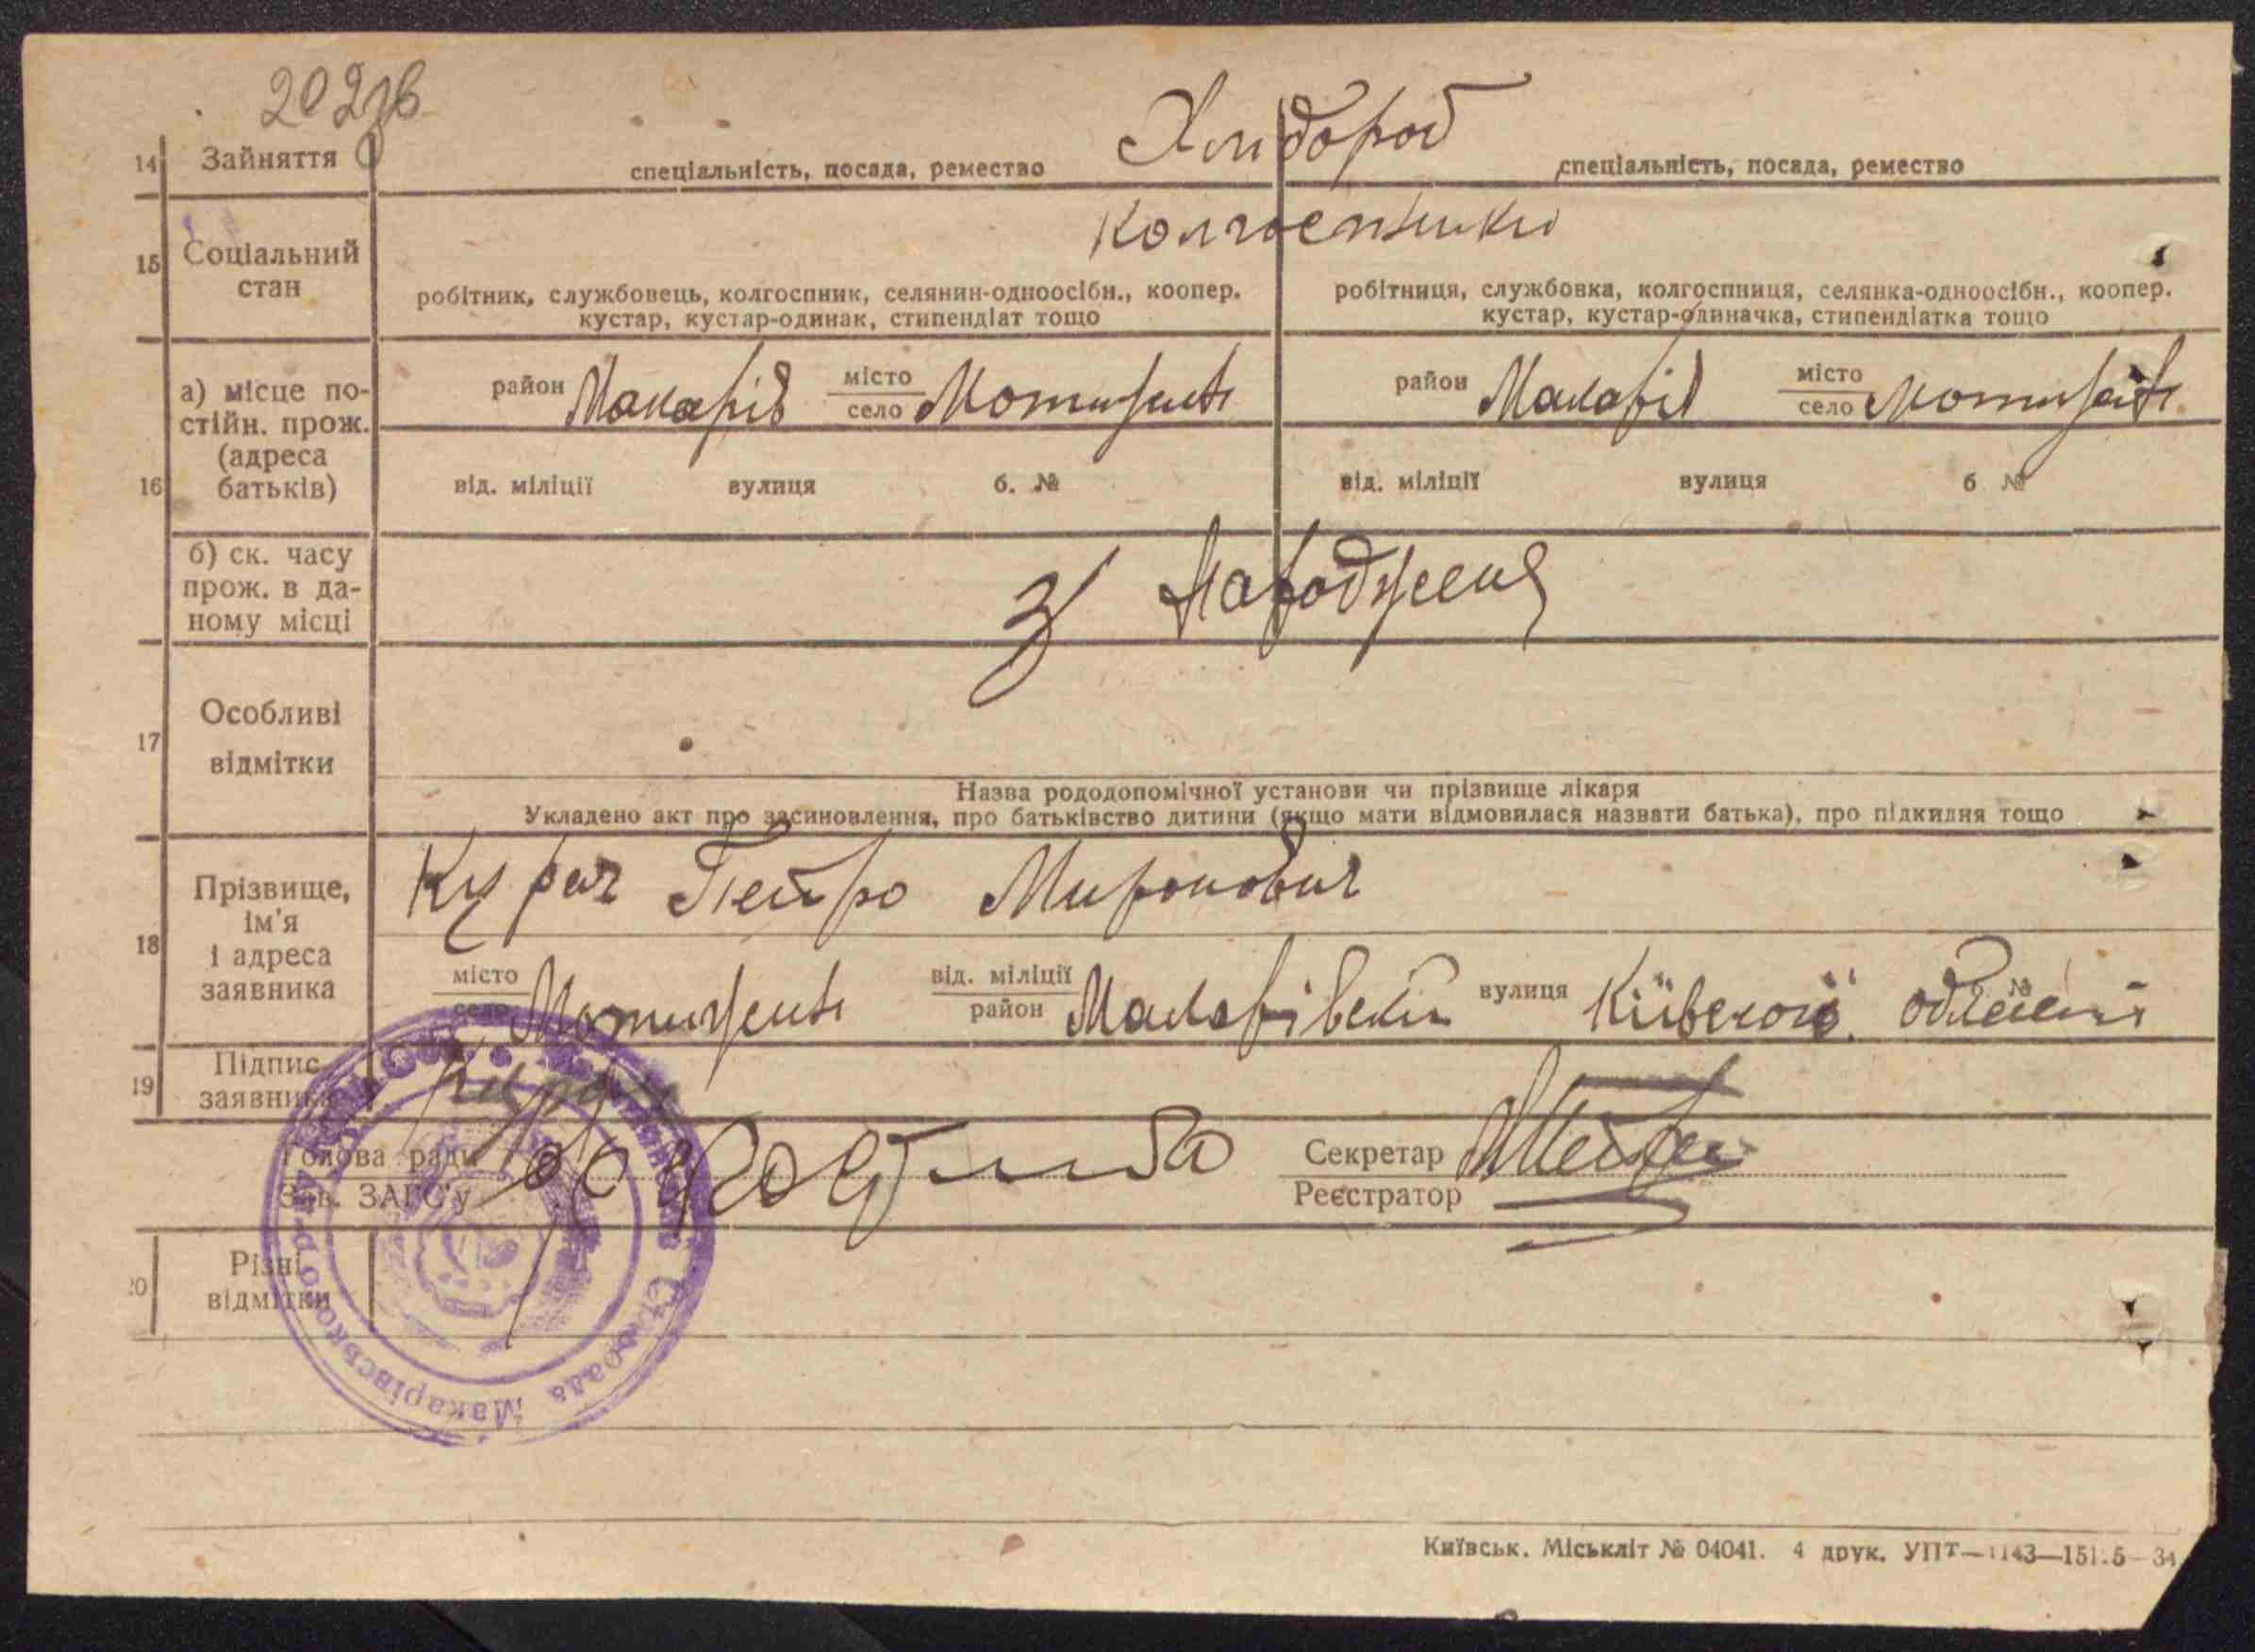 202зв
14 Зайняття
Хлібороб
спеціальність, посада, ремество
спеціальність, посада, ремество
15 Соціальний стан
Колгоспники
робітник, службовець, колгоспник, селянин-одноосібн., коопер.
кустар, кустар-одинак, стипендіат тощо
робітниця, службовка, колгоспниця, селянка-одноосібн., коопер.
кустар, кустар-одиначка, стипендіатка тощо
16 а) місце по-
стійн. прож.
(адреса
батьків)
район Макарів місто село Мотижень
район Макарів місто село Мотижень
від. міліції вулиця б. №
від. міліції вулиця б №
б) ск. часу
прож. в да-
ному місці
З Народженя
17 Особливі
відмітки
Назва рододопомічної установи чи прізвище лікаря
Укладено акт про засиновлення, про батьківство дитини (якщо мати відмовилася назвати батька), про підкидня тощо
18 Прізвище,
ім'я
і адреса
заявника
Курач Петро Миронович
місто село Мотижень від. міліції район Макарівский вулиця Київської області
19 Підпис
заявника
Голова ради
Зав. ЗАГС'у
Секретар
Реєстратор
20 Різні
відмітки
рада Макарівського р-ну
Київськ. Міськліт № 04041. 4 друк. УПТ—1143—151.5—34